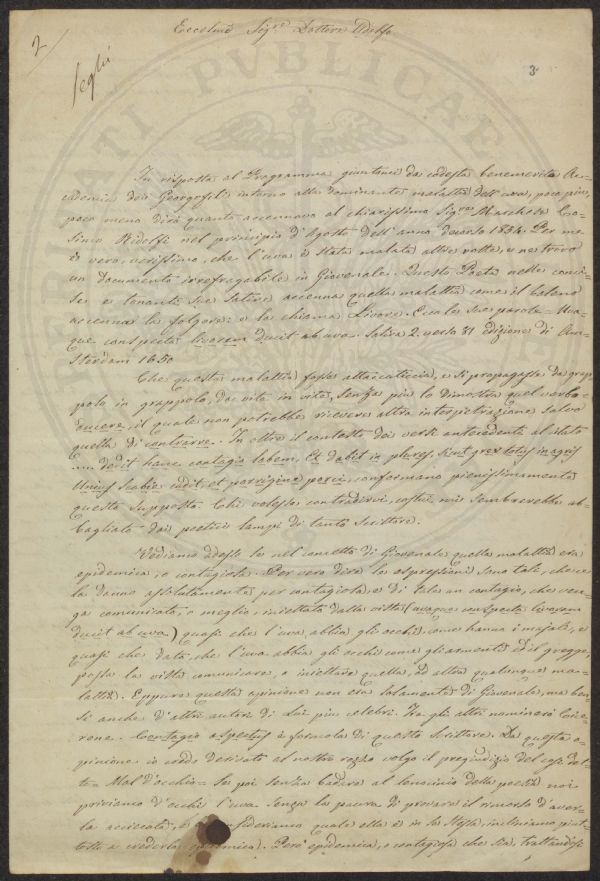 2
Eccelmo Sigre Dottore Adolfo
3
In risposta al Programma giuntaci da codesta benemerita Ac-
cademia dei Georgofili intorno alla dominante malattia dell'uva, poco più,
poco meno dirò quanto accennavo al chiarissimo Sigre Marchese Co-
simo Ridolfi nel principio d'Agosto dell'anno decorso 1854. Per me
è vero, verissimo, che l'uva è stata malata altre volte, e ne trovo
un documento irrefragabile in Giovenale. Questo Poeta nelle conci-
se e tonanti sue Satire accenna quella malattia come il baleno
accenna la folgore: e la chiama Livore. Eccole sue parole = Uva-
que conspecta livorem ducit ab uva. Satira 2. verso 81 edizione di Am-
sterdam 1650
Che questa malattia fosse attaccaticcia, e si propagasse da grap-
polo in grappolo, da vite in vite, senza più lo dimostra quel verbo
ducere, il quale non potrebbe ricevere altra interpretazione salvo
quella di contrarre. In oltre il contesto dei versi antecedenti al citato
.... dedit hanc contagio labem, Et dabit in plures, sicut grex totus in agris
Unius scabie cadit et porrigine porci, conformano pienissimamente
questo supposto. Chi volesse contradirvi, costui mi sembrerebbe ab-
bagliato dai poetici lampi di tanto Scrittore.
Vediamo adesso se nel concetto di Giovenale quella malattia era
epidemica, o contagiosa. Per vero dire le espressioni sono tali, che ce
la danno assolutamente per contagiosa, e di tale un contagio, che ven-
ga comunicato, o meglio, iniettato dalla vista (uvaque conspecta livorem
ducit ab uva) quasi che l'uva abbia gli occhi come hanno i majali, e
quasi che data, che l'uva abbia gli occhi come gli armenti ed il gregge,
possa la vista comunicare, o iniettare quella, od altra qualunque ma-
lattia. Eppure questa opinione non era solamente di Giovenale, ma ben-
sì anche d'altri autori di Lui più celebri. Tra gli altri nominerò Cice-
rone. Contagio aspectus è formola di questo Scrittore. Da questa o-
pinione io credo derivato al nostro rozzo volgo il pregiudizio del così det-
to = Mal d'occhio = Se poi senza badare al lenocinio della poesia noi
priviamo d'occhi l'uva senza la paura di provare il rimorso d'aver-
la acciecata, e consideriamo quale ella è in se stessa, incliniamo piut-
tosto a crederla epidemica. Però epidemica, o contagiosa che sia, trattandosi